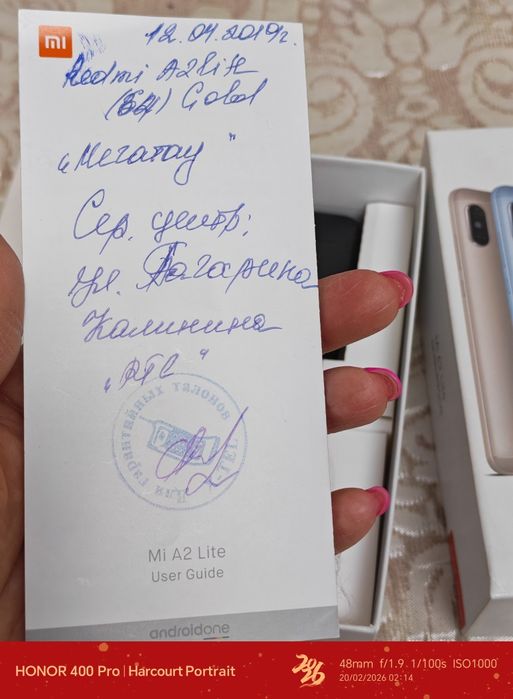 mi
12.04.2019г.
Redmi A2Lite
(64) Gold
"Мегатау"
Сер. центр:
ул. Гагарина
Калинина
"РТС"
Для гарантийных талонов
Mi A2 Lite
User Guide
androidone
HONOR 400 Pro | Harcourt Portrait
2026
48mm f/1.9 1/100s ISO1000
20/02/2026 02:14